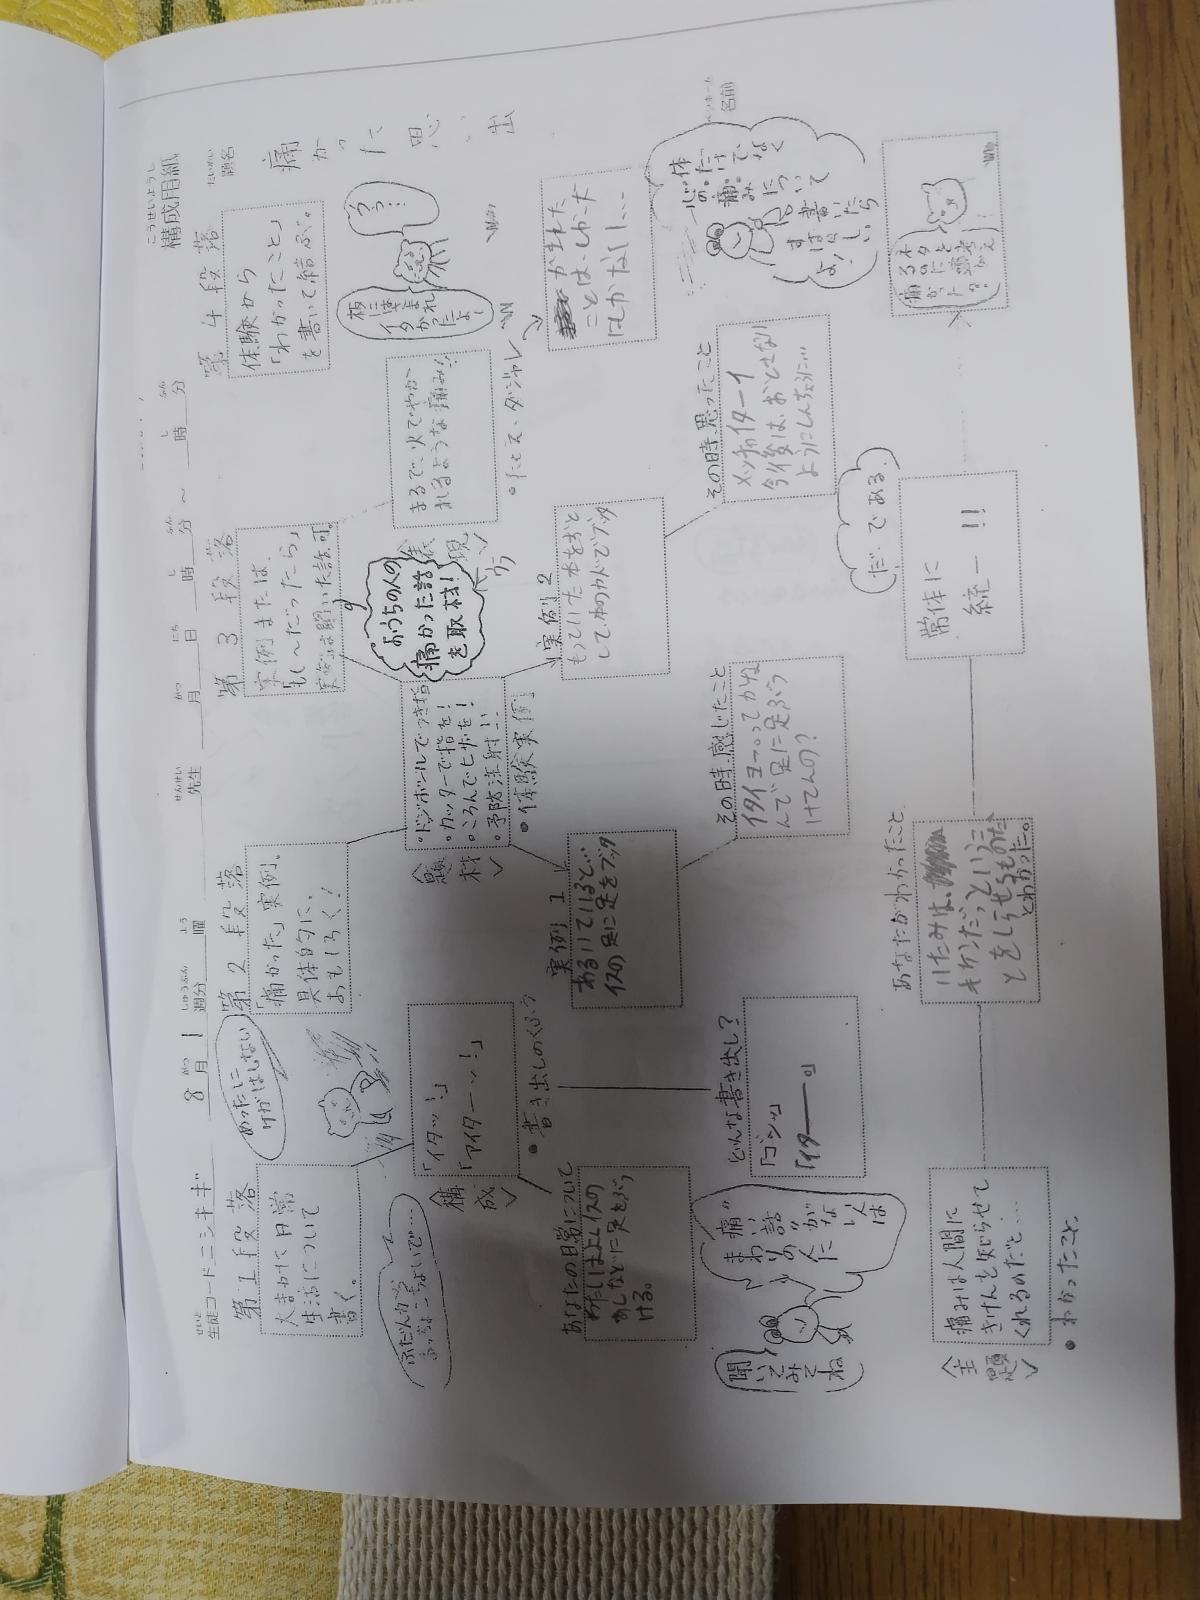 こうせいようし
構成用紙
だいめい
題名
痛かった思い出
せいと
生徒コード ニシキギ
8月 1週分
がつ
しゅうぶん
よう
曜
せんせい
先生
がつ
月
にち
日
じ
時
ふん
分
～
じ
時
ふん
分
名前
第1段落
大まかに日常
生活について
書く。
めったに
けがはしない
第2段落
「痛かった」実例。
具体的に、
おもしろく！
第3段落
実例または、
「もし～だったら」
第4段落
体験から
「わかったこと」
を書いて結ぶ。
うぅ…
〈構成〉
「イタッ！」
「アイターッ！」
・書き出しのくふう
〈題材〉
・ドッジボールでつき指
・カッターで指を！
・ころんでヒザを！
・予防注射！！
・体験実例
おうちの人の
痛かった話
を取材！
〈表現〉
まるで、火でやか
れるような痛み！！
・たとえ・ダジャレ
あなたの日常について
わたしはよくイスの
あしなどに足をぶつ
ける。
実例1
あるいていると…
イスの足に足をブッタ
実例2
もっていた本をおと
して、本のカドでブッタ
ことは、しかった
はしかない！…
どんな書き出し？
「ゴンッ」
「イター――。」
その時、感じたこと
その時、思ったこと
メッチャイターイ
今後は、おとさない
ようにしんちょうに…
体
だけ
でなく
心の痛み
について
書いたら
すばらしい
よ！
“痛い話”
がない人は
まわりの人に
聞いて
みて
ね
〈主題〉
痛みは人間に
きけんを知らせて
くれるのだと…
・わかったこと。
あなたがわかったこと
いたみは、
きけんだっということ
をしらせるもの
とわかった。
常体に
統一！！
だ、である。